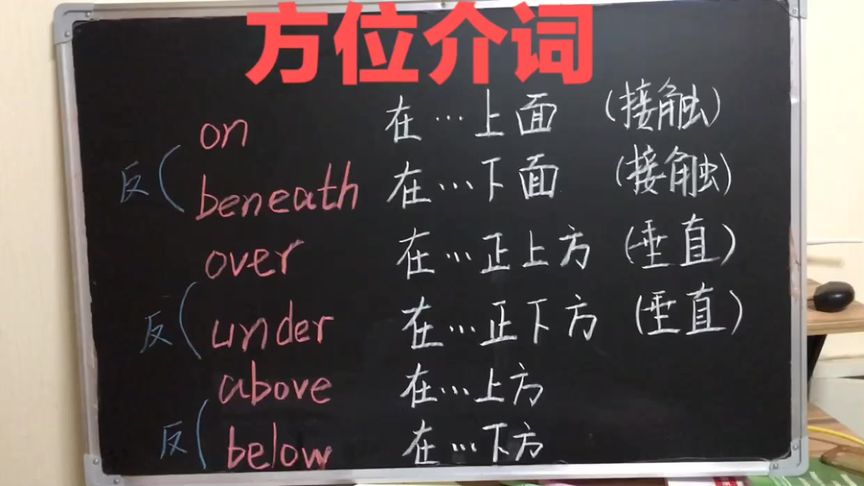 方位介词
on 在…上面 (接触)
反( beneath 在…下面 (接触)
over 在…正上方 (垂直)
反( under 在…正下方 (垂直)
above 在…上方
反( below 在…下方